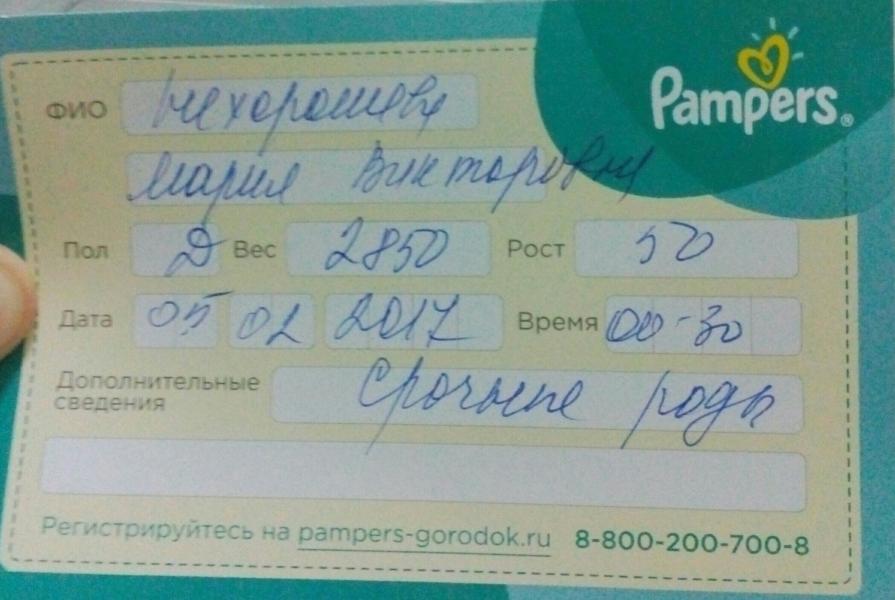 Pampers®
ФИО Нехорошева
Мария Викторовна
Пол Д Вес 2850 Рост 50
Дата 05 02 2017 Время 00-30
Дополнительные сведения Срочные роды
Регистрируйтесь на pampers-gorodok.ru 8-800-200-700-8